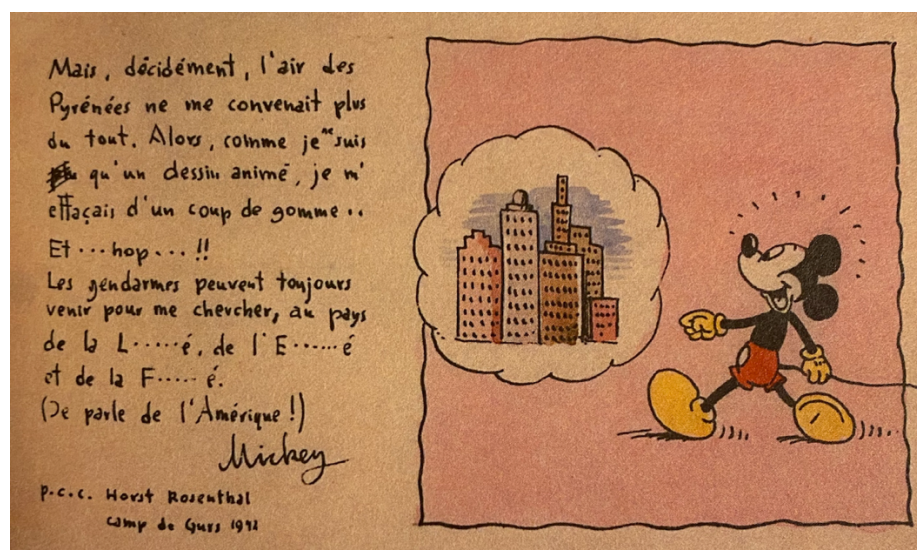 Mais, décidément, l'air des
Pyrénées ne me convenait plus
du tout. Alors, comme je ne suis
qu'un dessin animé, je m'
effaçais d'un coup de gomme..
Et ... hop ... !!
Les gendarmes peuvent toujours
venir pour me chercher, au pays
de la L.....é, de l'E......é
et de la F.....é.
(Je parle de l'Amérique!)
Mickey
p.c.c. Horst Rosenthal
Camp de Gurs 1942